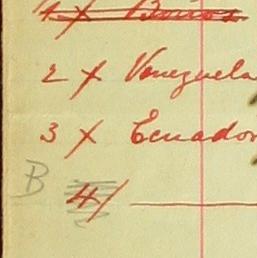 2 X Venezuela
3 X Ecuador
B 4/